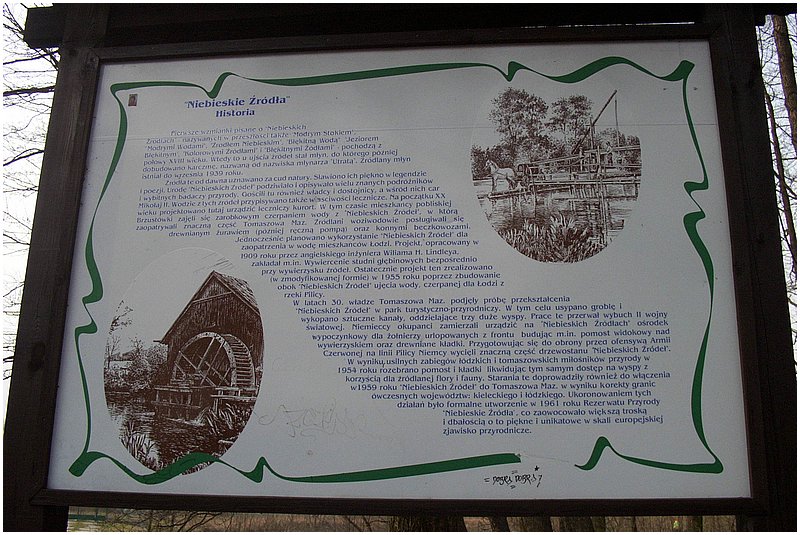 "Niebieskie Źródła"
Historia
Pierwsze wzmianki pisane o "Niebieskich
Źródłach" - nazywanych w przeszłości także "Modrym Stokiem",
"Modrymi Wodami", "Źródłem Niebieskim", "Błękitną Wodą", "Jeziorem
Błękitnym", "Kolorowymi Źródłami" i "Błękitnymi Źródłami" - pochodzą z
połowy XVIII wieku. Wtedy to u ujścia źródeł stał młyn, do którego później
dobudowano karczmę, nazwaną od nazwiska młynarza "Utratą". Źródlany młyn
istniał do września 1939 roku.
Źródła te od dawna uznawano za cud natury. Sławiono ich piękno w legendzie
i poezji. Urodę "Niebieskich Źródeł" podziwiało i opisywało wielu znanych podróżników
i wybitnych badaczy przyrody. Gościli tu również władcy i dostojnicy, a wśród nich car
Mikołaj II. Wodzie z tych źródeł przypisywano także właściwości lecznicze. Na początku XX
wieku projektowano tutaj urządzić leczniczy kurort. W tym czasie mieszkańcy pobliskiej
Brzustówki zajęli się zarobkowym czerpaniem wody z "Niebieskich Źródeł", w którą
zaopatrywali znaczną część Tomaszowa Maz. Źródlani woziwodowie posługiwali się
drewnianym żurawiem (później ręczną pompą) oraz konnymi beczkowozami.
Jednocześnie planowano wykorzystanie "Niebieskich Źródeł" dla
zaopatrzenia w wodę mieszkańców Łodzi. Projekt, opracowany w
1909 roku przez angielskiego inżyniera Wiliama H. Lindleya,
zakładał m.in. Wywiercenie studni głębinowych bezpośrednio
przy wywierzysku źródeł. Ostatecznie projekt ten zrealizowano
(w zmodyfikowanej formie) w 1955 roku poprzez zbudowanie
obok "Niebieskich Źródeł" ujęcia wody, czerpanej dla Łodzi z
rzeki Pilicy.
W latach 30. władze Tomaszowa Maz. podjęły próbę przekształcenia
"Niebieskich Źródeł" w park turystyczno-przyrodniczy. W tym celu usypano groblę i
wykopano sztuczne kanały, oddzielające trzy duże wyspy. Prace te przerwał wybuch II wojny
światowej. Niemieccy okupanci zamierzali urządzić na "Niebieskich Źródłach" ośrodek
wypoczynkowy dla żołnierzy urlopowanych z frontu budując m.in. pomost widokowy nad
wywierzyskiem oraz drewniane kładki. Przygotowując się do obrony przed ofensywą Armii
Czerwonej na linii Pilicy Niemcy wycięli znaczną część drzewostanu "Niebieskich Źródeł".
W wyniku usilnych zabiegów łódzkich i tomaszowskich miłośników przyrody w
1954 roku rozebrano pomost i kładki likwidując tym samym dostęp na wyspy z
korzyścią dla źródlanej flory i fauny. Starania te doprowadziły również do włączenia
w1959 roku "Niebieskich Źródeł" do Tomaszowa Maz. w wyniku korekty granic
ówczesnych województw: kieleckiego i łódzkiego. Ukoronowaniem tych
działań było formalne utworzenie w 1961 roku Rezerwatu Przyrody
"Niebieskie Źródła", co zaowocowało większą troską
i dbałością o to piękne i unikatowe w skali europejskiej
zjawisko przyrodnicze.